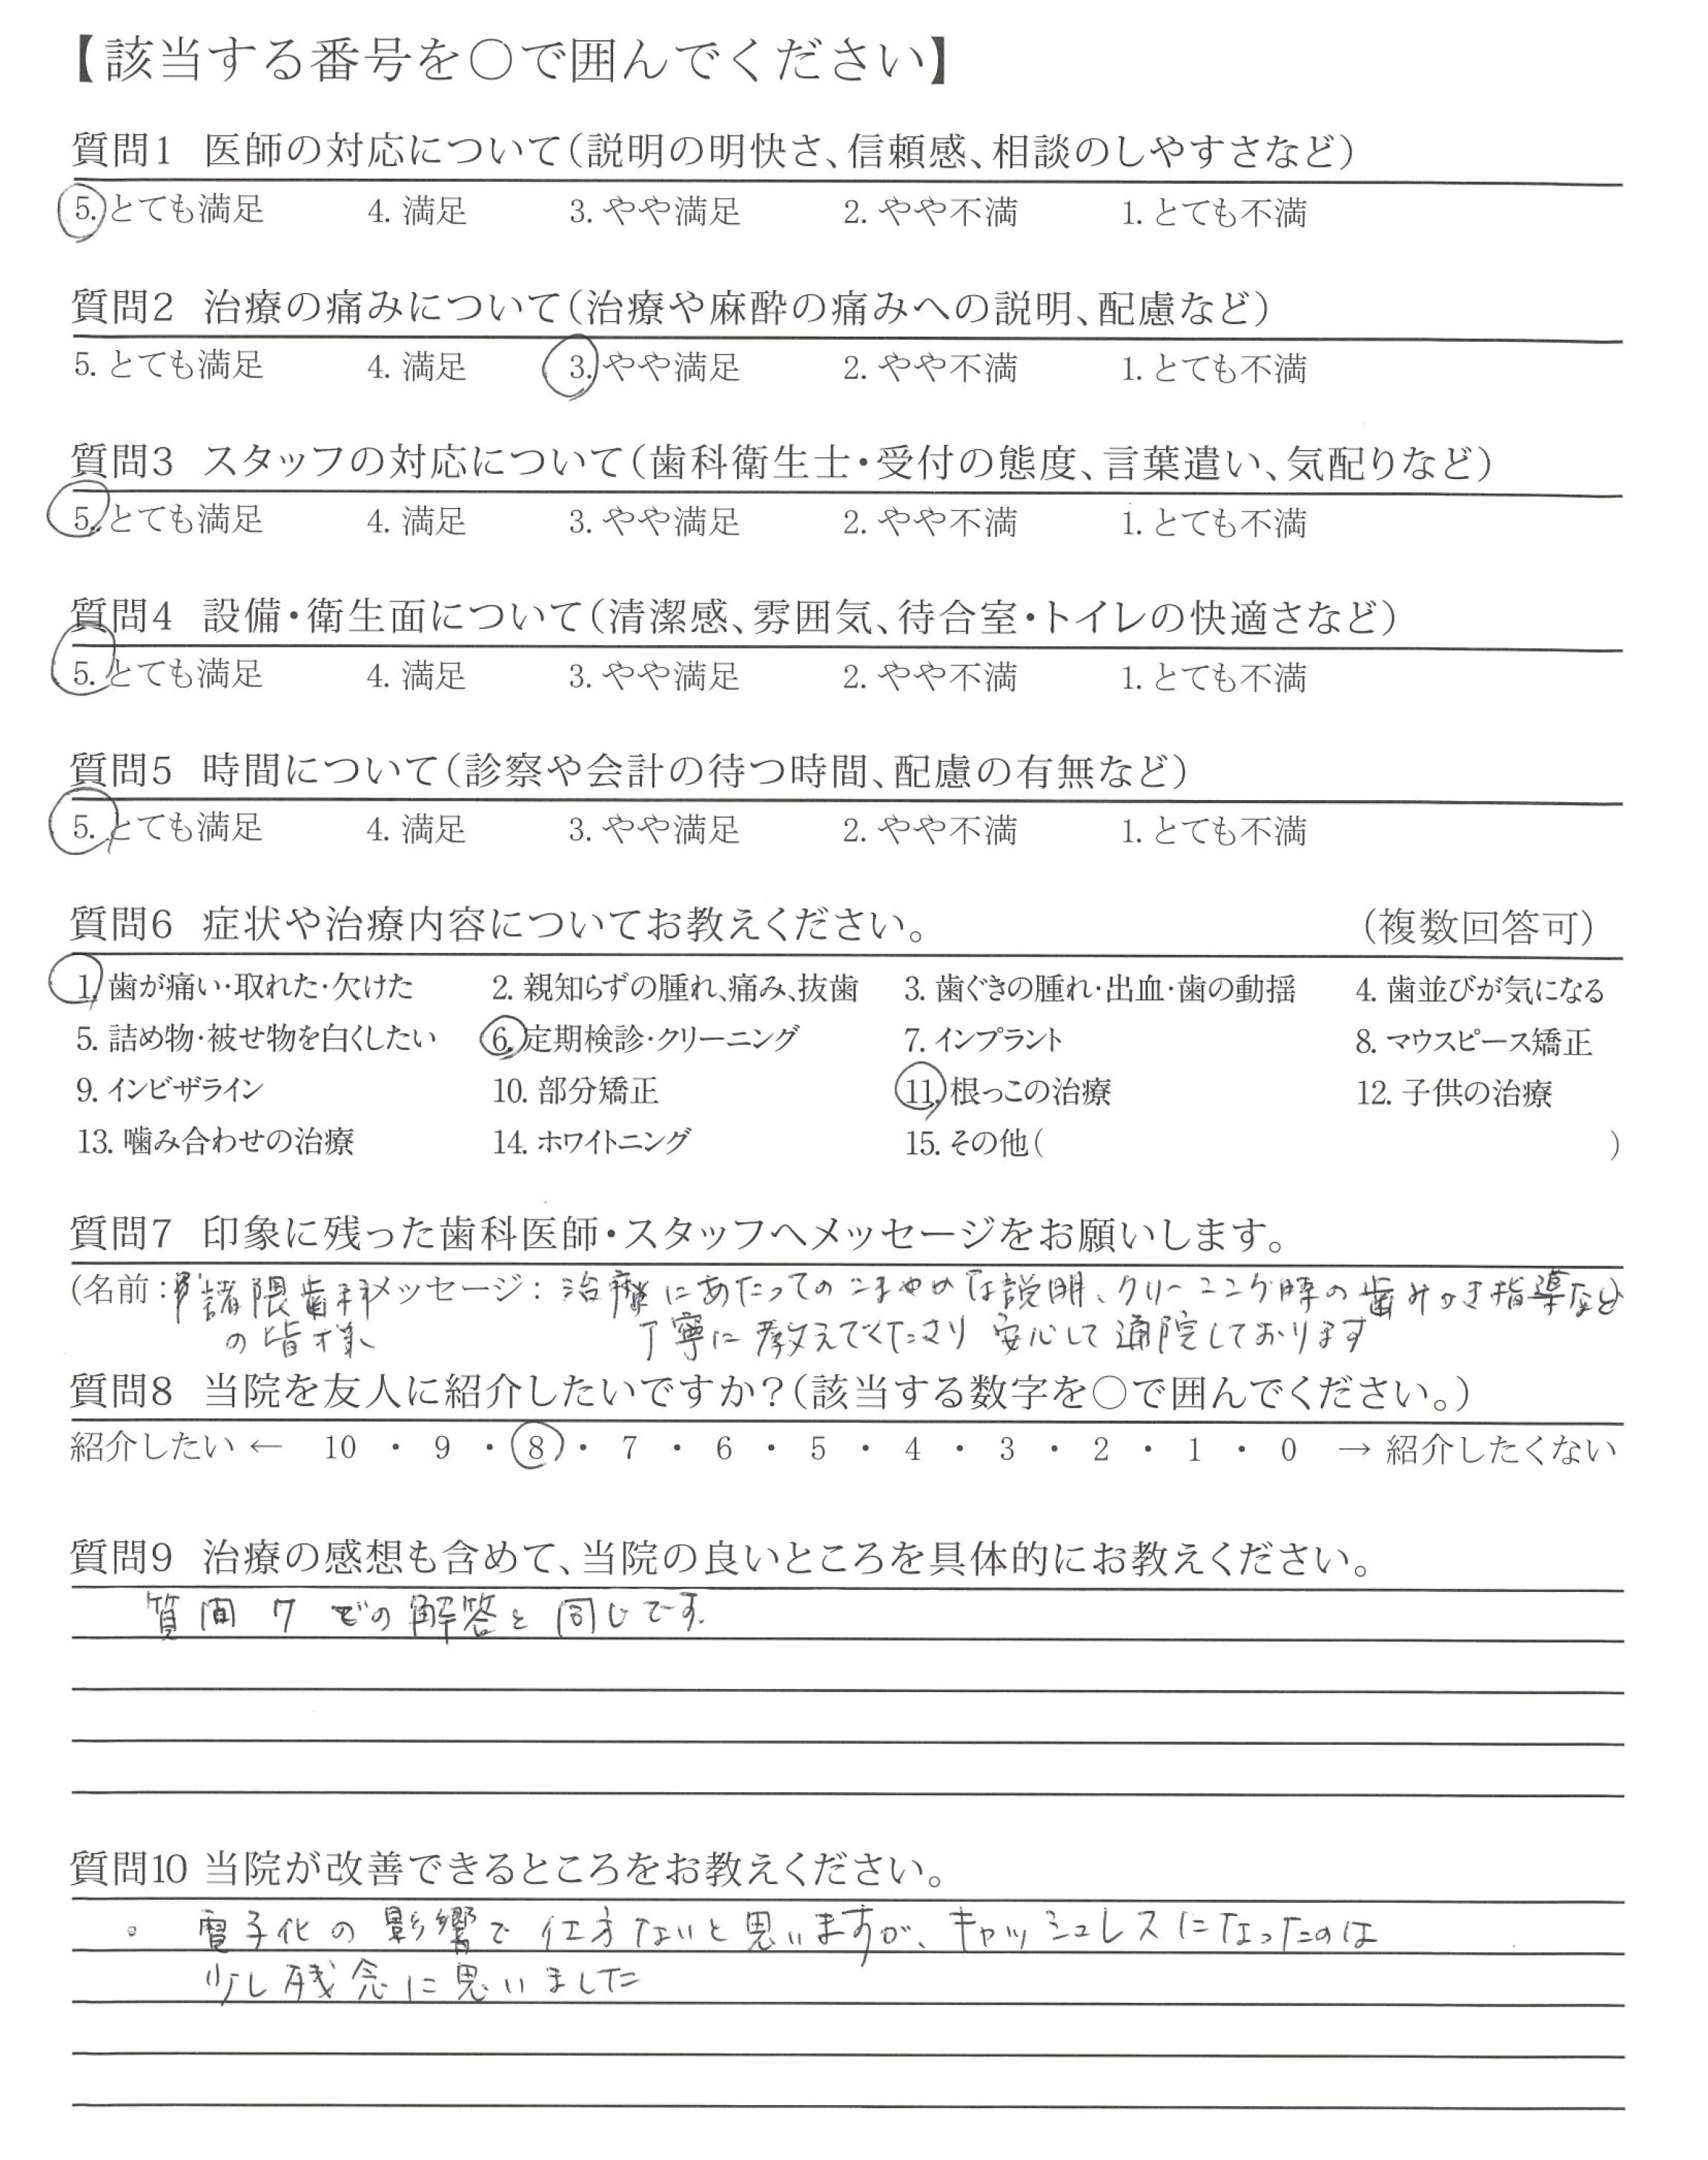 【該当する番号を○で囲んでください】
質問1 医師の対応について(説明の明快さ、信頼感、相談のしやすさなど)
5. とても満足 4. 満足 3. やや満足 2. やや不満 1. とても不満
質問2 治療の痛みについて(治療や麻酔の痛みへの説明、配慮など)
5. とても満足 4. 満足 3. やや満足 2. やや不満 1. とても不満
質問3 スタッフの対応について(歯科衛生士・受付の態度、言葉遣い、気配りなど)
5. とても満足 4. 満足 3. やや満足 2. やや不満 1. とても不満
質問4 設備・衛生面について(清潔感、雰囲気、待合室・トイレの快適さなど)
5. とても満足 4. 満足 3. やや満足 2. やや不満 1. とても不満
質問5 時間について(診察や会計の待つ時間、配慮の有無など)
5. とても満足 4. 満足 3. やや満足 2. やや不満 1. とても不満
質問6 症状や治療内容についてお教えください。 (複数回答可)
1. 歯が痛い・取れた・欠けた 2. 親知らずの腫れ、痛み、抜歯 3. 歯ぐきの腫れ・出血・歯の動揺 4. 歯並びが気になる
5. 詰め物・被せ物を白くしたい 6. 定期検診・クリーニング 7. インプラント 8. マウスピース矯正
9. インビザライン 10. 部分矯正 11. 根っこの治療 12. 子供の治療
13. 噛み合わせの治療 14. ホワイトニング 15. その他( )
質問7 印象に残った歯科医師・スタッフへメッセージをお願いします。
(名前: 諸隈歯科 メッセージ: 治療にあたってのこまやかな説明、クリーニング時の歯みがき指導など
の皆様 丁寧に教えてくださり安心して通院しております
質問8 当院を友人に紹介したいですか?(該当する数字を○で囲んでください。)
紹介したい ← 10 ・ 9 ・ 8 ・ 7 ・ 6 ・ 5 ・ 4 ・ 3 ・ 2 ・ 1 ・ 0 → 紹介したくない
質問9 治療の感想も含めて、当院の良いところを具体的にお教えください。
質問7での解答と同じです.
質問10 当院が改善できるところをお教えください。
。電子化の影響で仕方ないと思いますが、キャッシュレスになったのは
少し残念に思いました